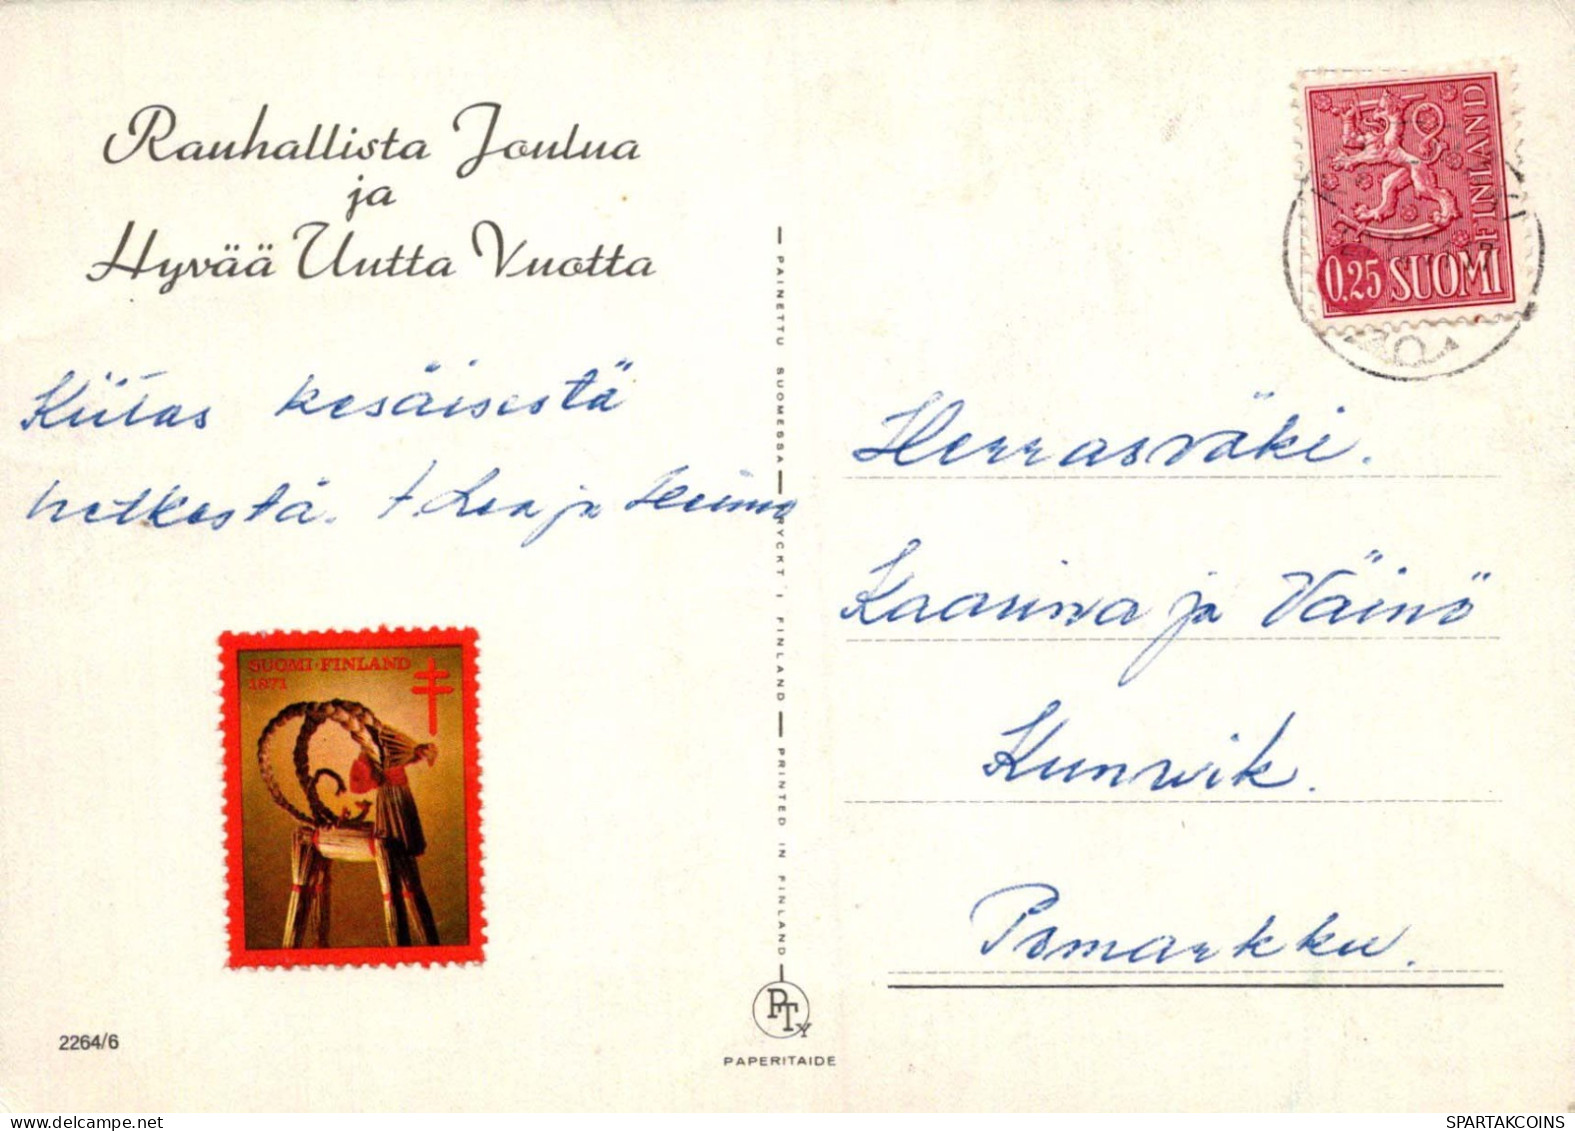 Rauhallista Joulua
ja
Hyvää Uutta Vuotta
Kiitos kesäisestä
hetkestä. t. Lea ja Heimo
SUOMI·FINLAND
1971
2264/6
PAINETTU SUOMESSA — TRYCKT I FINLAND — PRINTED IN FINLAND
PTy
PAPERITAIDE
FINLAND
0,25 SUOMI
Herrasväki.
Kaarina ja Väinö
Kunwik.
Pomarkku.
SPARTAKCOINS